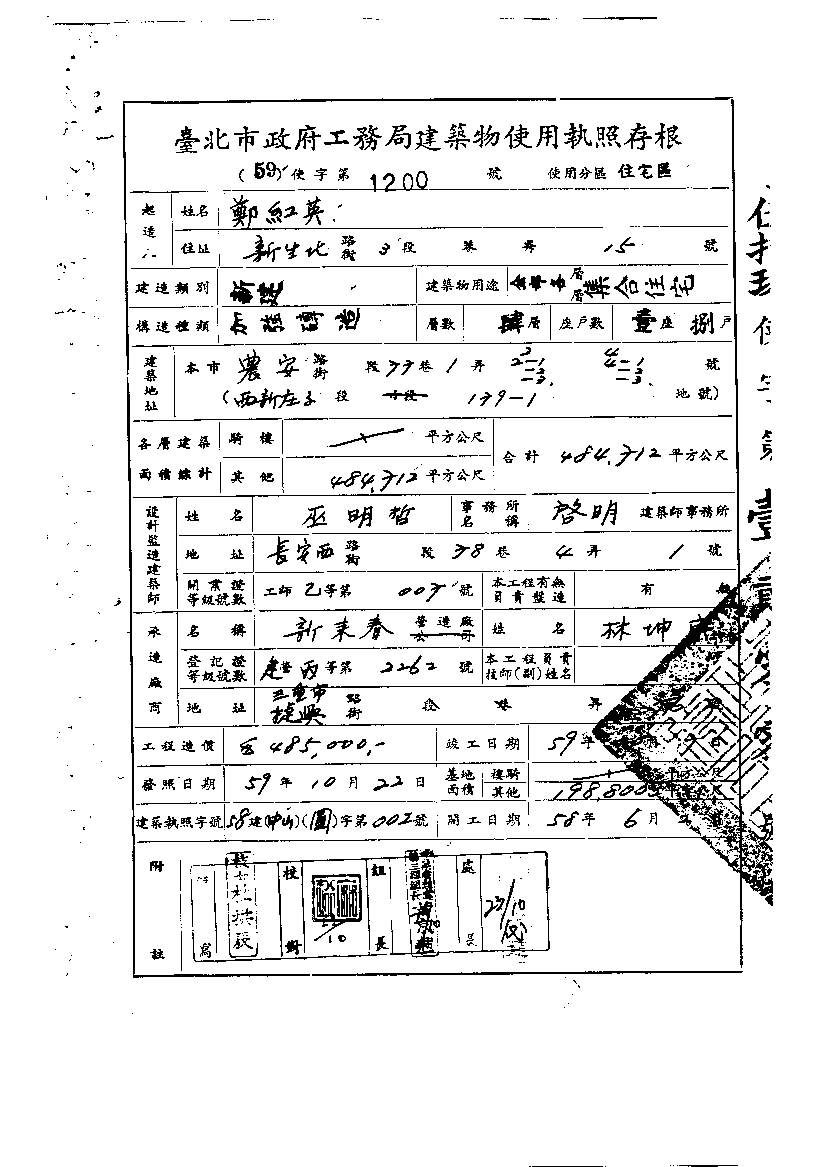 臺北市政府工務局建築物使用執照存根
(59)使字第 1200 號 使用分區 住宅區
起造人 姓名 鄭紅英
住址 新生北 路街 3段 巷 弄 15 號
建造類別 新建 建築物用途 層層 集合住宅
構造種類 加強磚造 層數 肆層 座戶數 壹座 捌戶
建築地址 本市 農安 路街 段 33巷 1弄 2-1 -2 -3 4-1 -2 -3 號
(西新庄子 段 小段 139-1 地號)
各層建築面積總計 騎樓 平方公尺
其他 484.312 平方公尺 合計 484.312 平方公尺
設計監造建築師 姓名 巫明哲 事務所名稱 啓明 建築師事務所
地址 長安西 路街 段 38巷 4弄 1號
開業證等級號數 工師乙等第 號 本工程有無負責監造 有
承造廠商 名稱 新來春 營造廠公司 姓名 林坤
登記證等級號數 營丙等第 2262 號 本工程負責技師(副)姓名
地址 三重市 路街 段 巷 弄
工程造價 485,000,- 竣工日期 59年 日
發照日期 59年10月22日 基地面積 樓騎 平方公尺
其他 198.800
建築執照字號 58建(中山)(圓)字第002號 開工日期 58年 6月
附註 繕寫 校對 組長 處長
10
23/10